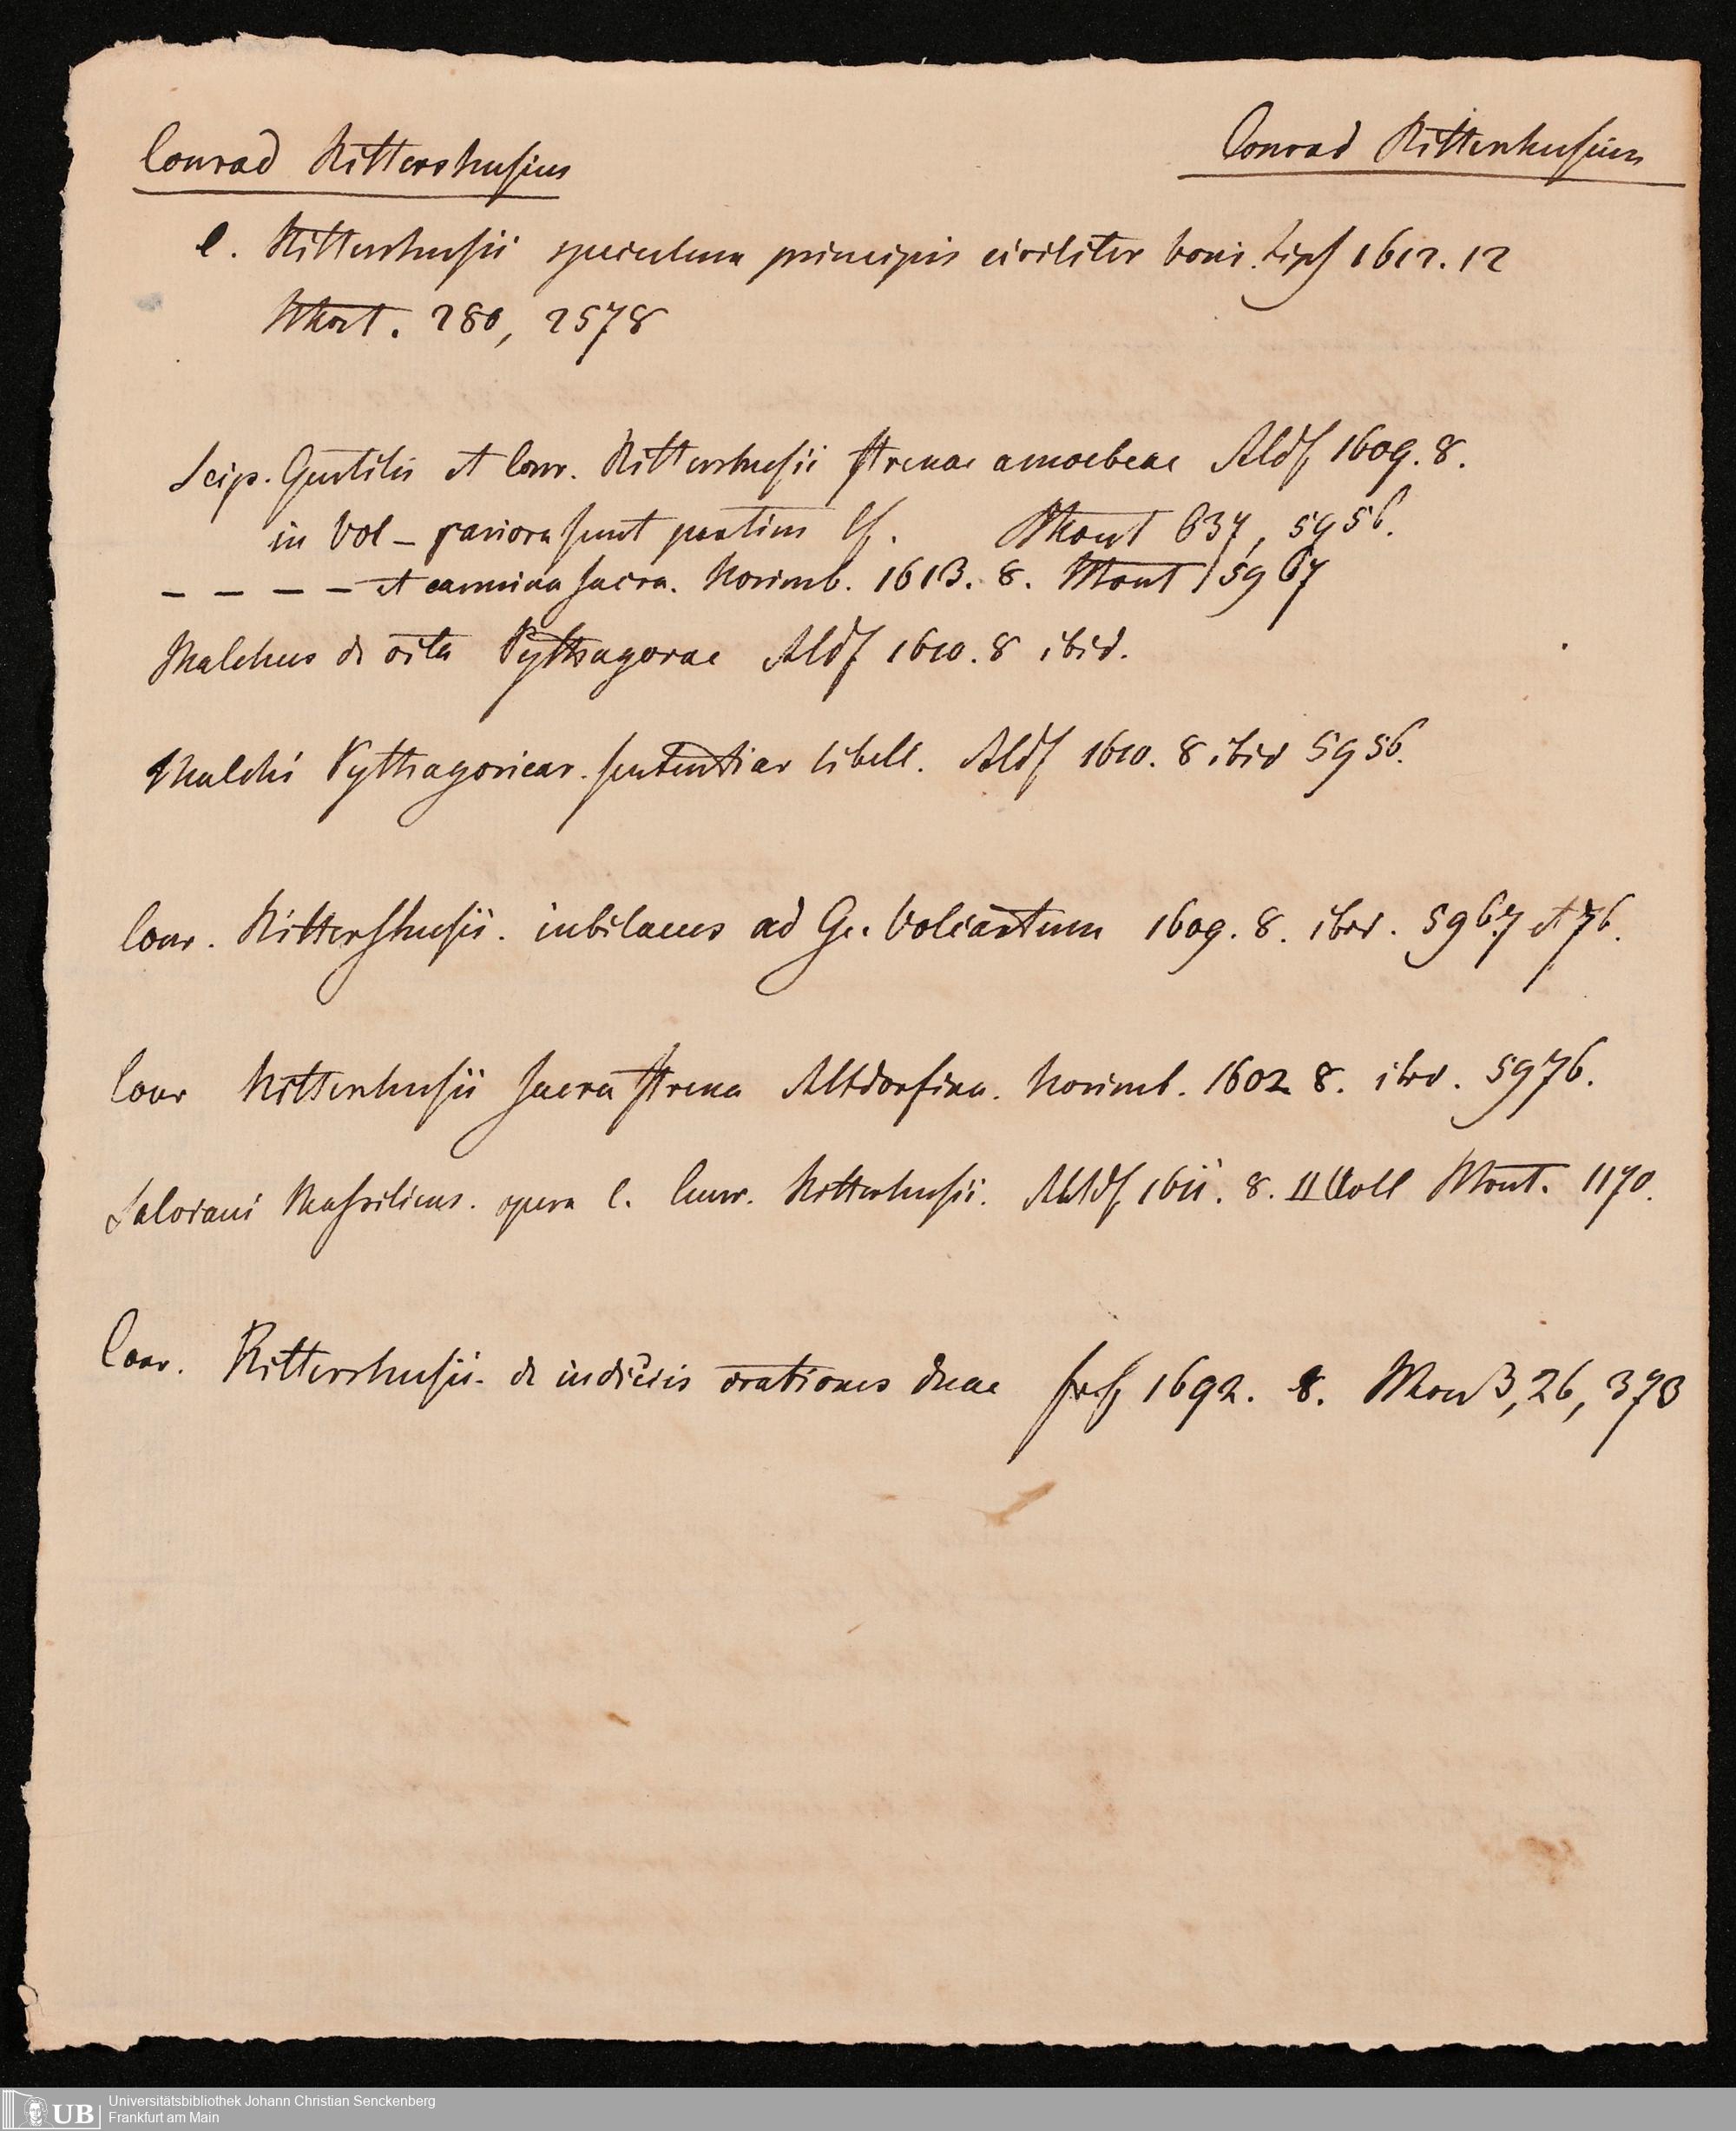 Conrad Rittershusius
Conrad Rittershusius
C. Rittershusii speculum principis civiliter boni. Lips 1612. 12
Mont. 280, 2578
Scip. Gentilis et Conr. Rittershusii strenae amoebeae Altdf 1609. 8.
in Vol – rariora sunt partim Ex. Mont 637, 5956.
– – – – et carmina sacra. Norimb. 1613. 8. Mont 5967
Malchus de vita Pythagorae Altdf 1610. 8 ibid.
Malchi Pythagoricar. sententiar libell. Altdf 1610. 8 ibid 5956.
Conr. Rittershusii. iubilaeus ad Ge. Volcartum 1609. 8. ibid. 5967 et 76.
Conr Rittershusii sacra strena Altdorfina. Norimb. 1602 8. ibid. 5976.
Salviani Massiliens. opera c. Conr. Rittershusii. Altdf 1611. 8. II Voll Mont. 1170.
Conr. Rittershusii. de iudiciis orationes duae 1692. 8. Mon 3, 26, 373
Universitätsbibliothek Johann Christian Senckenberg
UB Frankfurt am Main